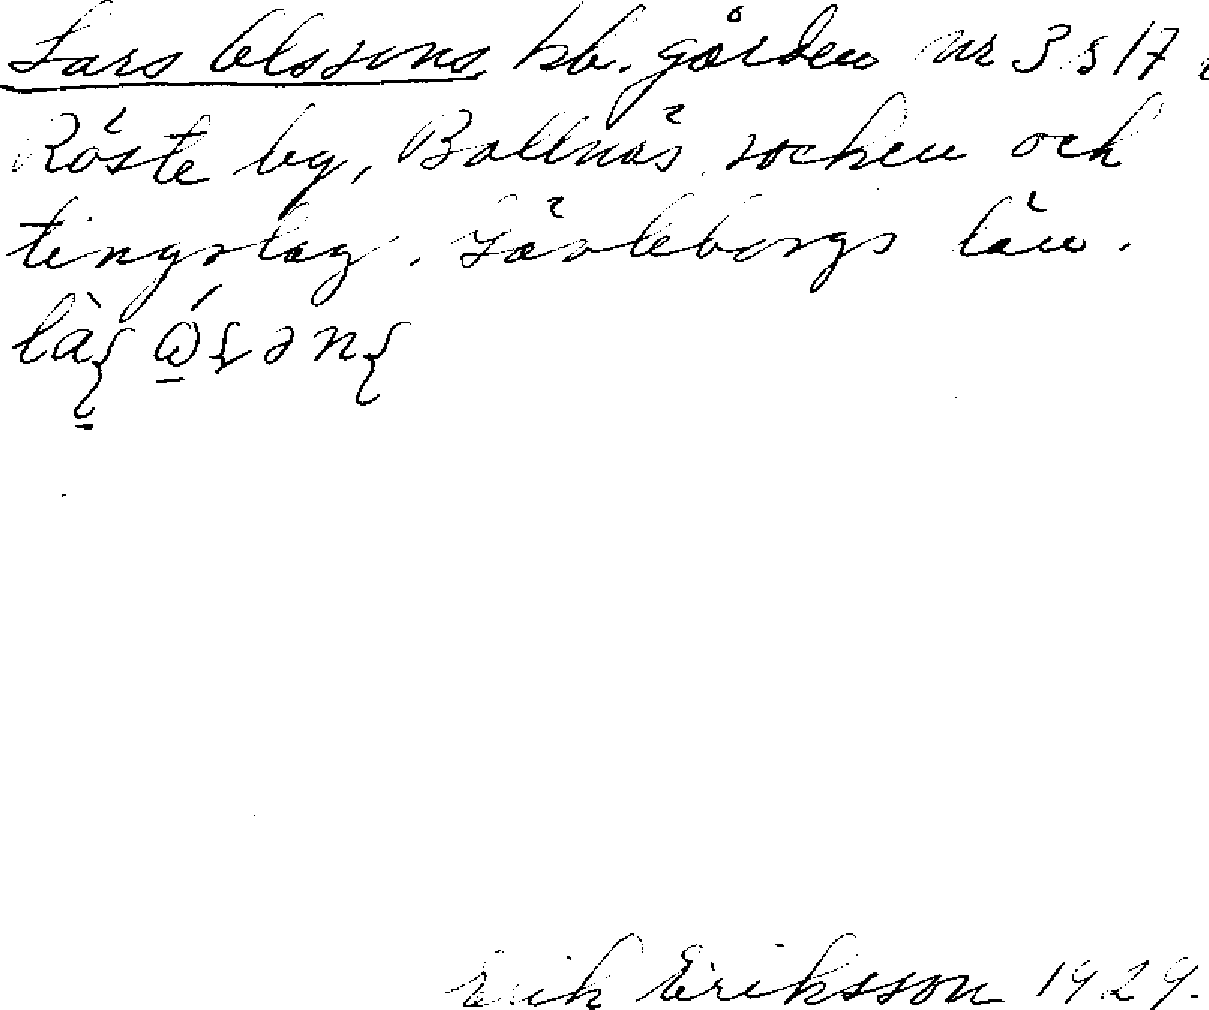 Lars Olssons bb. gården nr 3 § 17 i
Röste by, Bollnäs socken och
tingslag. Gävleborgs län.
Erik Eriksson 1929.